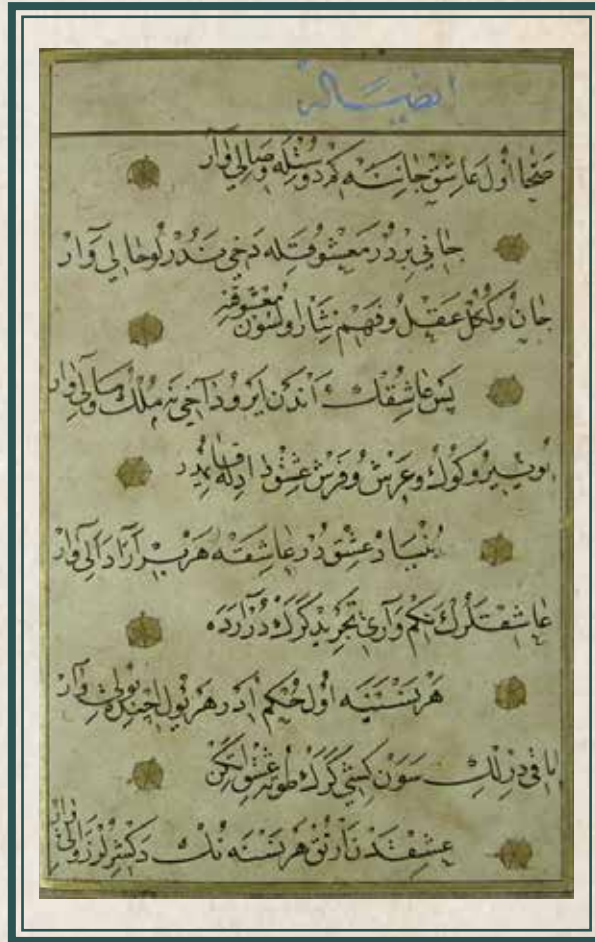 ايضا له
صحا اول عاشق جاننه كم دوستله وصالي وار
جاني بردر معشوقله دخي ندرلو حالي وار
جان وككل عقل وفهم نثار اولسون معشوقنه
پس عاشقك اندن ايرو داخي نه ملك ومالي وار
يير وكوك وعرش وفرش عشق
بنياد عشقدر عاشقه هر بير اراده الي وار
عاشقلرك نكم واري تجريد كرك دور ارده
هر نسنيه اول حكم ادر هر يول اچنده يولي وار
باقي درلك سون كشي كرك طوته عشق اتكن
عشقدن ارتق هر نسنه نك دكشرلور زوالي وار